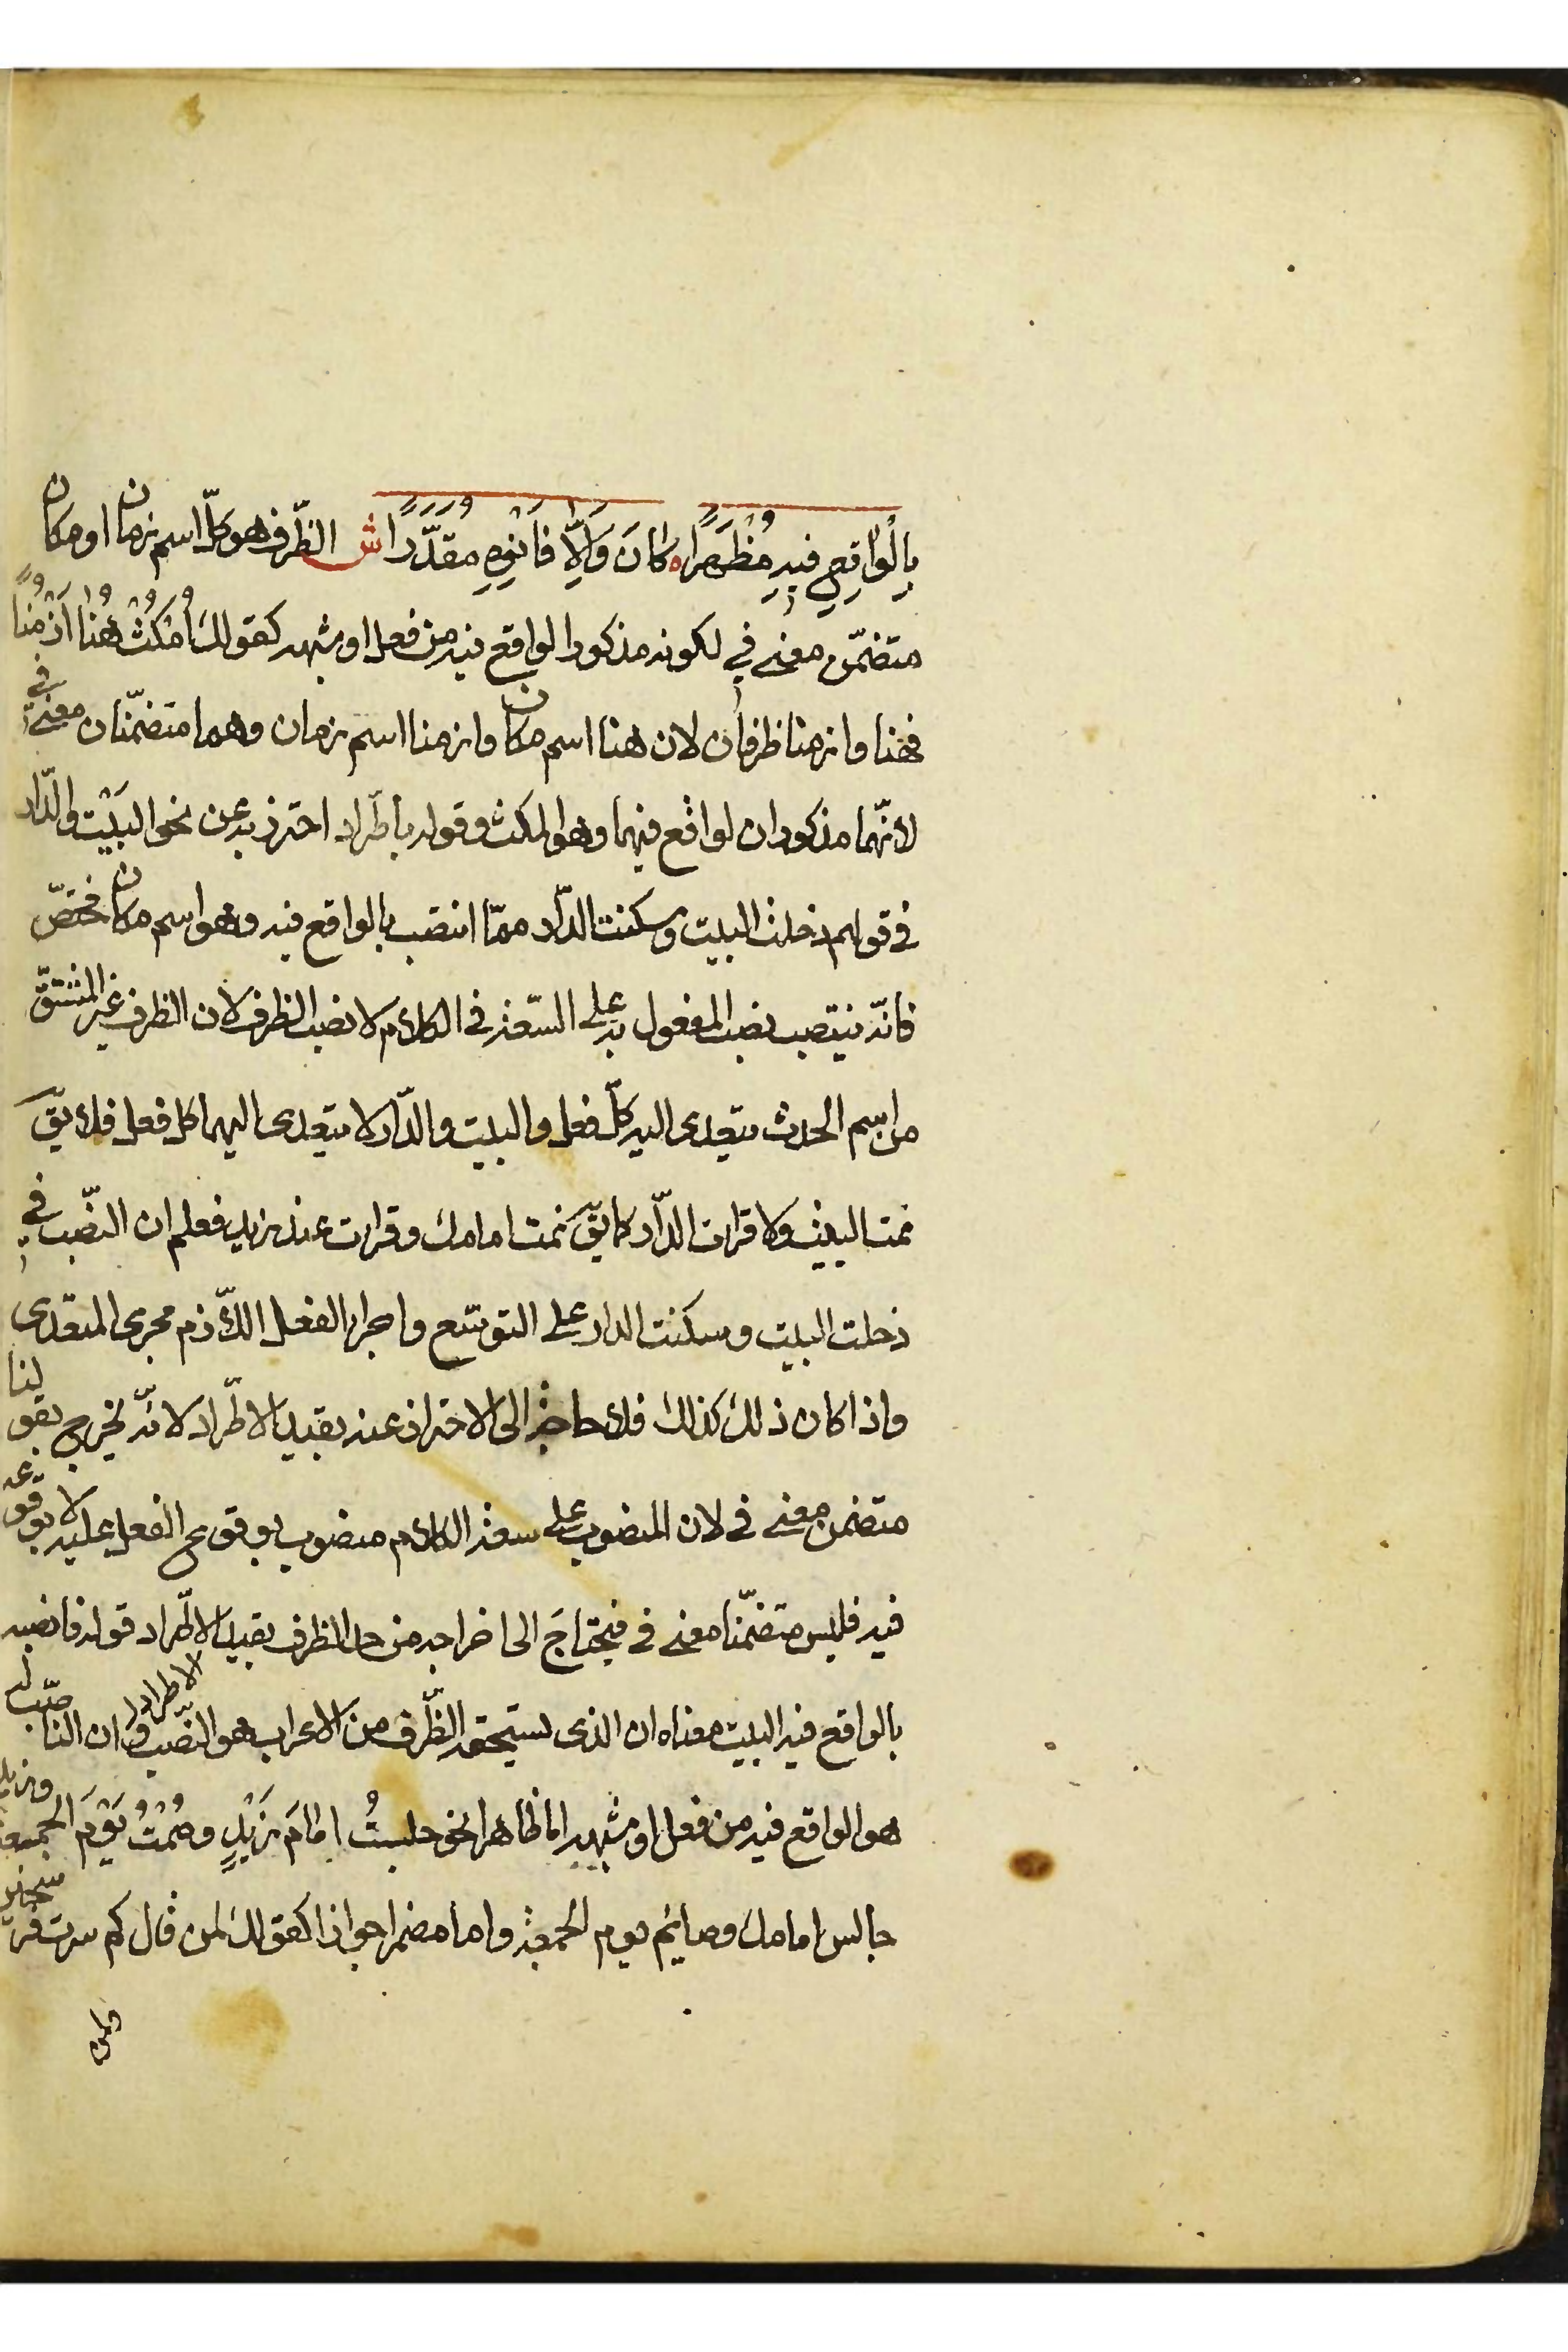 بِالْوَاقِعِ فِيهِ مُظْهَرًا ه كَانَ وَاِلَّا فَانْوِهِ مُقَدَّرًا ش الظّرف هو كلّ اسم زمان او مكان
متضمّن معنى في لكونه مذكورا لواقع فيه من فعل او شبهه كقولك اُمْكُثْ هُنَا اَزْمُنًا
فهنا وازمنا ظرفان لان هنا اسم مكان وازمنا اسم زمان وهما متضمّنان معنى في
لانّهما مذكوران لواقع فيهما وهو المكث وقوله باطّراد احترز به عن نحو البَيْت والدّار
في قولهم دخلت البيت وسكنت الدّار ممّا انتصب بالواقع فيه وهو اسم مكان مختصّ
فانّه ينتصب نصب المفعول به على السّعة في الكلام لا نصب الظرف لان الظرف غير المشتقّ
من اسم الحدث يتعدى اليه كلّ فعل والبيت والدّار لا يتعدى اليهما كل فعل فلا يقّ
نمت البيت ولا قرات الدّار كما يقّ نمت امامك وقرات عند زيد فعلم ان النصّب في
دخلت البيت وسكنت الدار على التوسّع واجراء الفعل اللّازم مجرى المتعدى
واذا كان ذلك كذلك فلا حاجة الى الاحتراز عنه بقيد الاطّراد لانّه يخرج بقولنا
متضمن معنى في لان المنصوب على سعة الكلام منصوب بوقوع الفعل عليه لا بوقوعه
فيه فليس متضمّنا معنى في فيحتاجَ الى اخراجه من حد الظرف بقيد الاطّراد قوله فانصبه
بالواقع فيه البيت معناه ان الذى يستحقه الظّرف من الاعراب هو النصّب وان الناصّب له
هو الواقع فيه من فعل او شبهه اما ظاهرا نحو جلستُ اِمَامَ زَيْدٍ وصُمْتُ يَوْمَ الجمعة وزيد
جالس امامك وصايم يوم الجمعة واما مضمرا جوازا كقولك لمن قال كم سرت فرسخين
ولمن